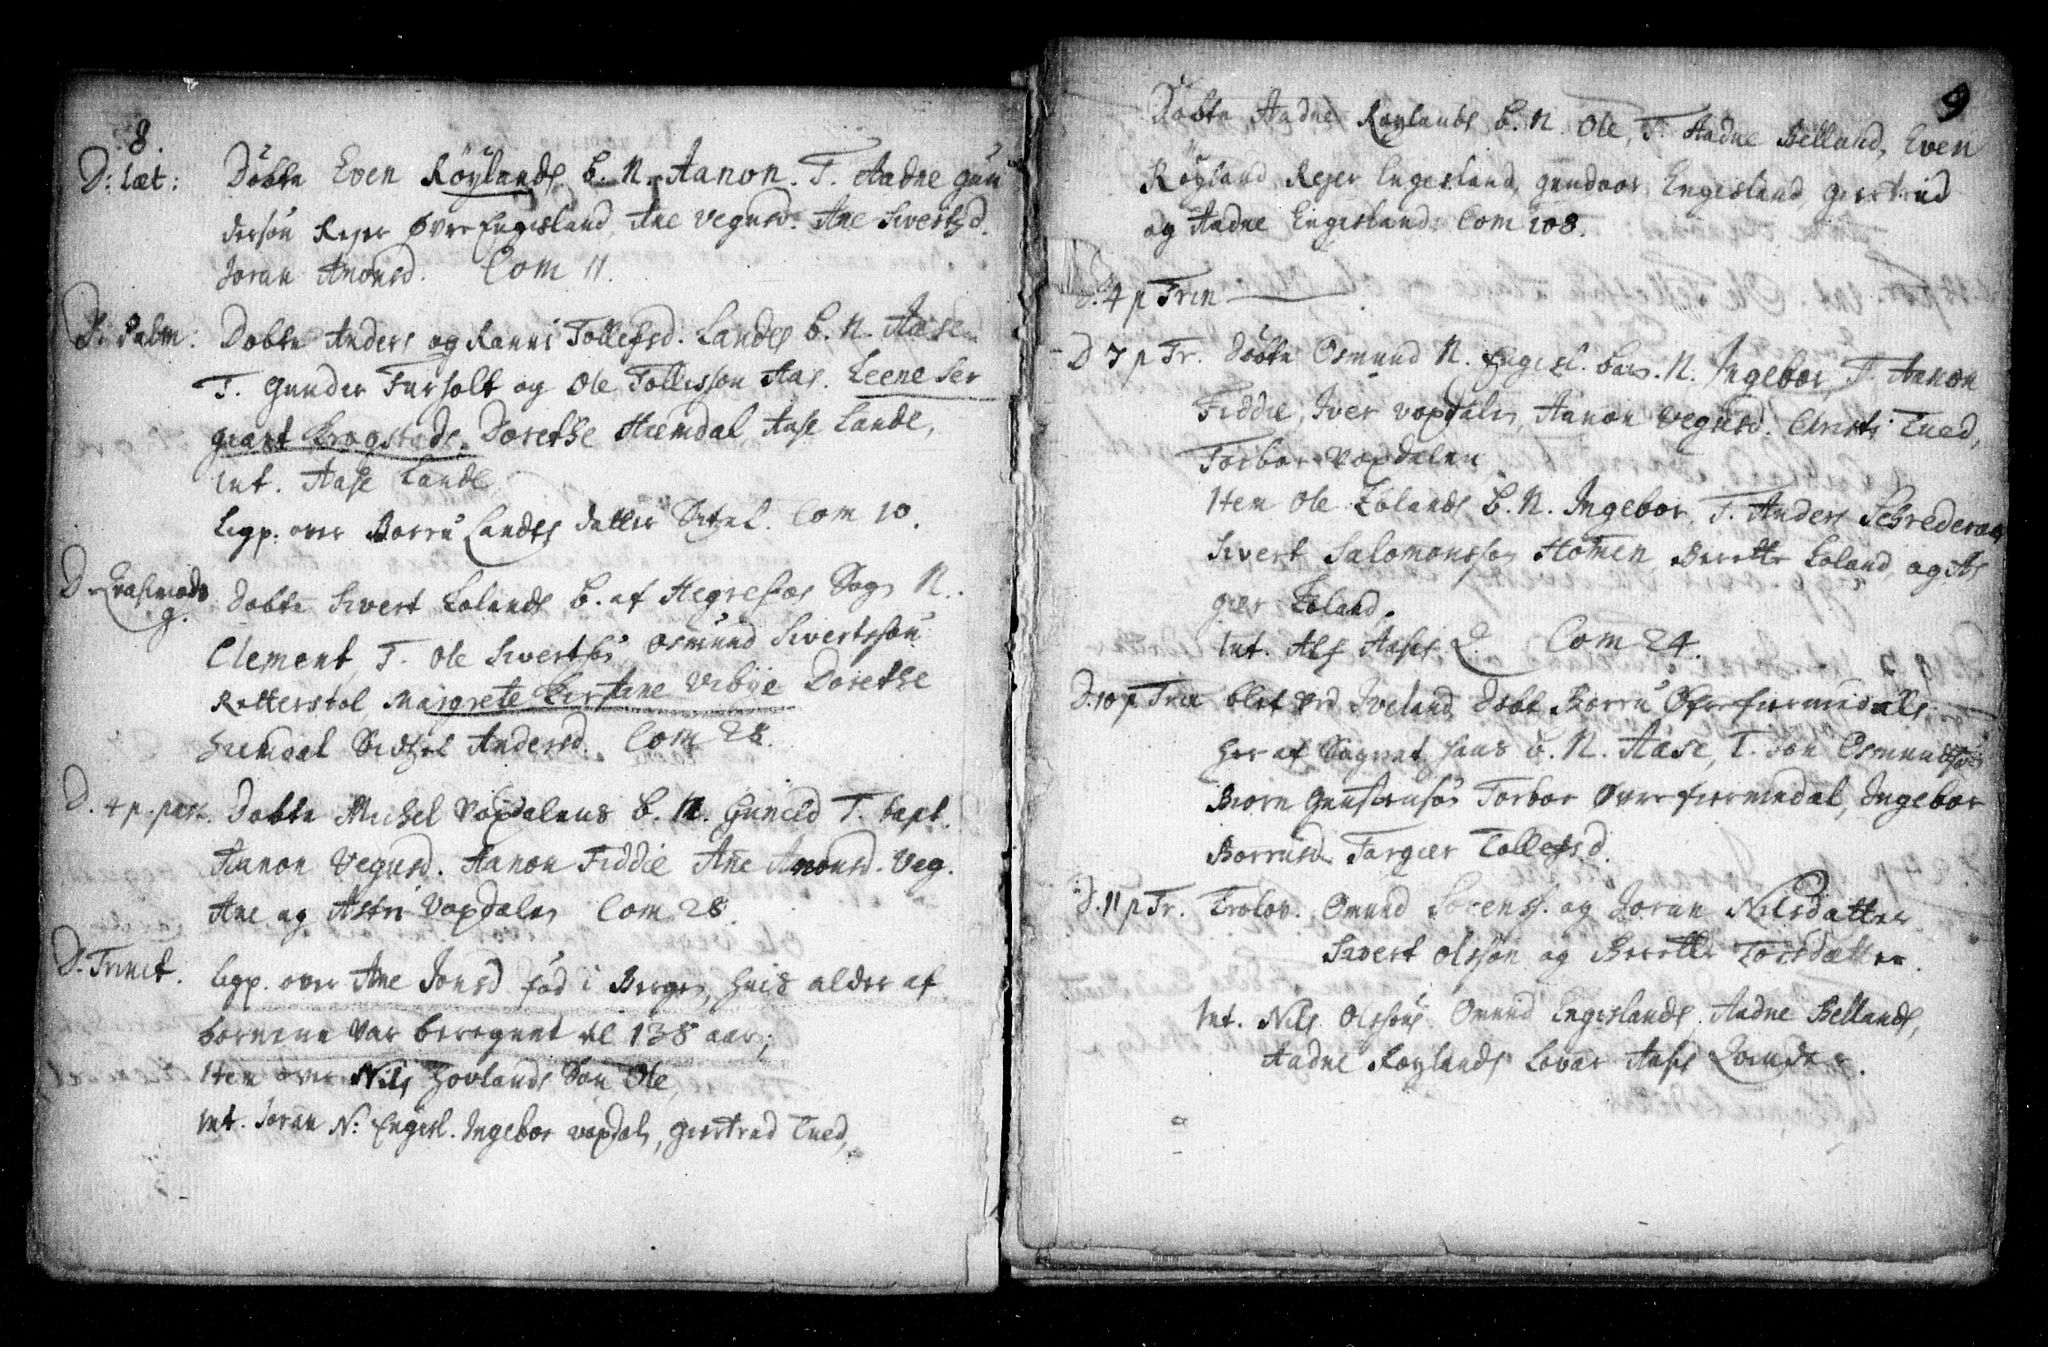 8.
D: Læt: Döbte Even Röylands b. N. Aanon. T. Aadne Gun
dersön Rejer Øvre Engesland, Ane Vegusd. Ane Sivertsd.
Joran Anonsd. Com 11.
D. Palm: Döbte Anders og Ranni Tollefsd. Landes b. N. Aase
T. Gunder Furholt og Ole Tollefsøn Aas. Leene Ser
giant Krogstads, Dorethe Hiemdal, Aase Lande,
Int. Aase Lande
Ligp. over Borru Landes datter Sitzel. Com 10.
D. Qvasimodo
g. Döbte Sivert Lolands b. af Hegrefos Sogn N.
Clement, T. Ole Sivertsøn Osmund Sivertssøn
Retterstøl, Margrete Kirstine Vibye Dorethe
Hiemdal Sidtzel Andersd. Com 28.
D. 4 p. pasc. Döbte Michel Vopdalens b. N. Gunild T. bapt.
Aanon Vegusd. Aanon Fiddie Ane Anonsd. Veg.
Ane og Astri Vopdalen Com 28.
D. Trinit. Ligp. over Ane Jonsd. fød i Bergen, huis alder af
bornene var beregnet til 138 aar;
Item over Nils Hovlands Søn Ole,
Int. Joran N. Engesl. Ingebor Vopdal, Giertrud Tued,
9
Döbte Aadne Røylands b. N. Ole, T. Aadne Belland, Even
Röyland, Rejer Engesland, Gundvor Engesland Giertrud
og Aadne Engesland. Com 108.
D. 4 p Trin
D 7 p Tr. Döbte Osmund N. Engesl. barn. N. Ingebor, T. Aanon
Fiddie, Iver Vopdalen, Aanon Vegusd. Christi Tued,
Torbor Vopdalen
Item Ole Lolands b. N. Ingebor, T. Anders
Sivert Salomonssøn Homen, Berette Loland, og As
gier Loland.
Int. Alf Aases Q. Com 24.
D. 10 p Trin blef ved Iveland Döbt Borru Øfrefiermedals
her af Sognet hans b. N. Aase, T. Jon Osmundsøn
Biørn Torbor Øvrefiermedal, Ingebor
Borrusd. Torgier Tollefsd.
D. 11 p Tr. Trolov. Omund Sorens. og Joran Nilsdatter
Sivert Olssøn og Berette Torsdatter.
Int. Nils Olssøns Omund Engeslands. Aadne Bellands,
Aadne Røylands Lovar Aases Qvinder.